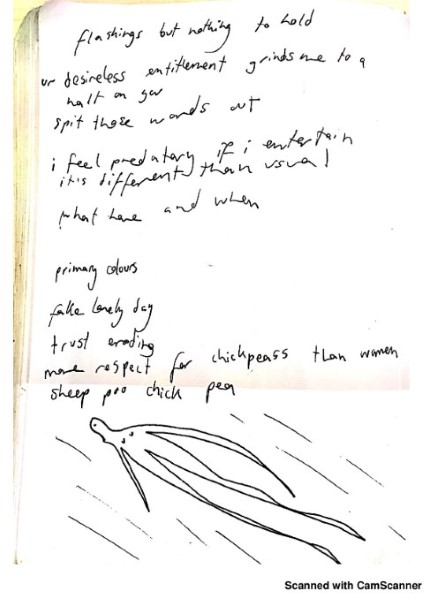 flashings but nothing to hold
ur desireless entitlement grinds me to a
halt on
spit those words out
i feel predatory if i entertain
it's different than usual
what have and when
primary colours
fake lonely day
trust eroding
more respect for chickpeass than women
sheep poo chick pea
Scanned with CamScanner